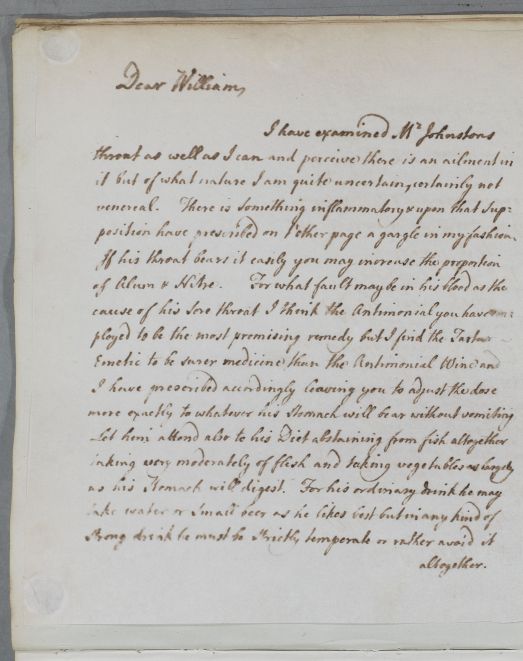 Dear William,
I have examined Mr. Johnstons
throat as well as I can and perceive there is an ailment in
it but of what nature I am quite uncertain, certainly not
venereal. There is something inflammatory & upon that Sup=
position have prescribed on t'other page a gargle in my fashion.
If his throat bears it easily you may increase the proportion
of Alum & Nitre. For what fault may be in his blood as the
cause of his Sore throat I think the Antimonial you have em=
ployed to be the most promising remedy but I find the Tartar
Emetic to be surer medicine than the Antimonial Wine and
I have prescribed accordingly leaving you to adjust the dose
more exactly to whatever his Stomach will bear without vomiting
Let him attend also to his Diet abstaining from fish altogether
taking very moderately of flesh and taking vegetables as largely
as his Stomach will digest. For his ordinary drink he may
take water or Small beer as he likes best but in any kind of
Strong drink he must be Strictly temperate or rather avoid it
altogether.